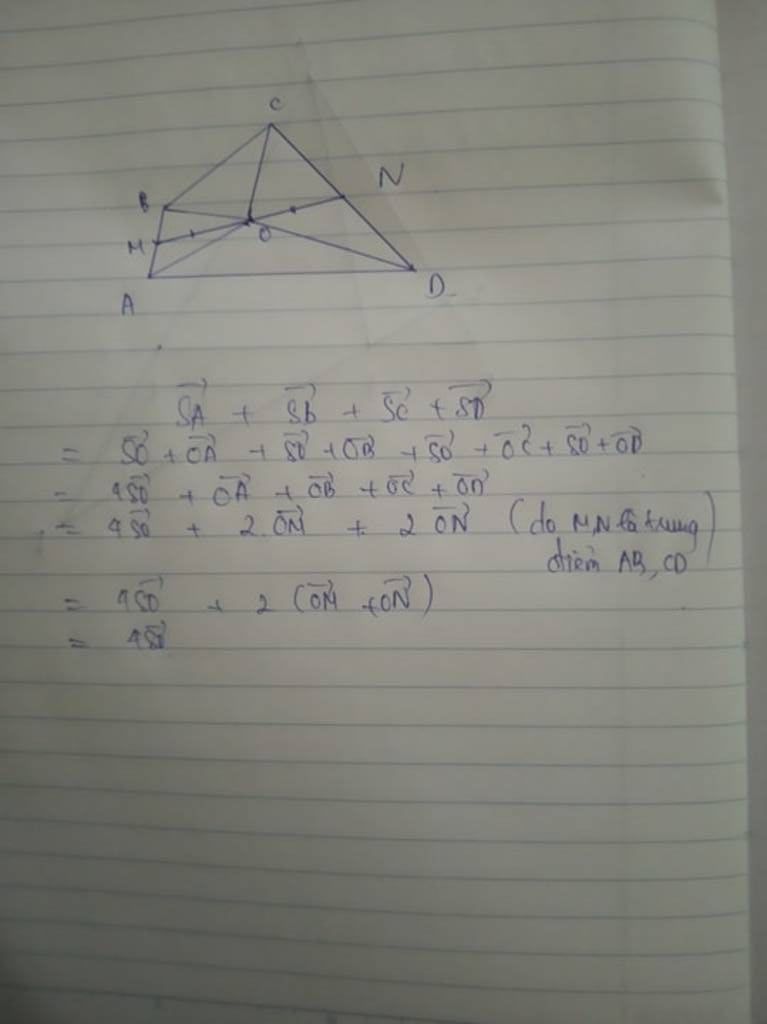 C
N
B
M
O
A
D
SA⃗ + SB⃗ + SC⃗ + SD⃗
= SO⃗ + OA⃗ + SO⃗ + OB⃗ + SO⃗ + OC⃗ + SO⃗ + OD⃗
= 4SO⃗ + OA⃗ + OB⃗ + OC⃗ + OD⃗
= 4SO⃗ + 2.OM⃗ + 2 ON⃗ (do M,N là trung
điểm AB, CD)
= 4SO⃗ + 2 (OM⃗ + ON⃗)
= 4SO⃗